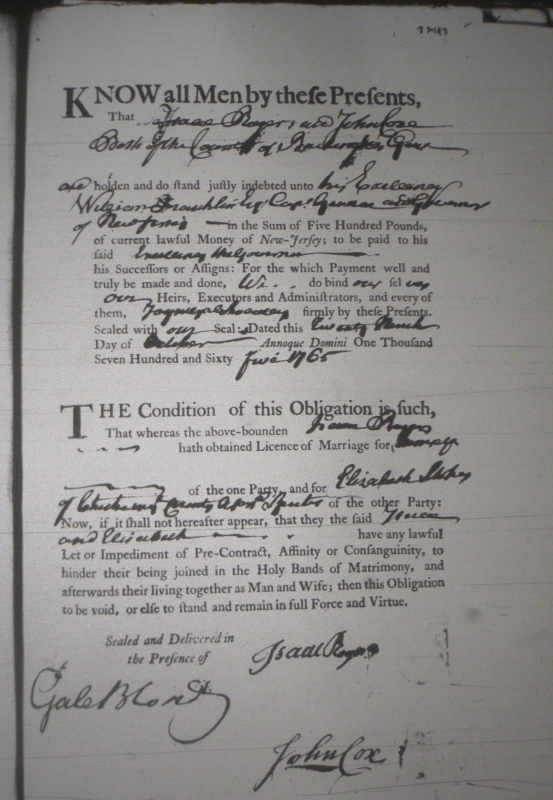 KNOW all Men by theſe Preſents,
That Isaac Rogers and John Coxe
Both of the County of Burlington
are holden and do ſtand juſtly indebted unto his Excellency
William Franklin Esqr. Capt. General and Governor
of New Jersey in the Sum of Five Hundred Pounds,
of current lawful Money of New-Jerſey; to be paid to his
ſaid Excellency the Governor
his Succeſſors or Aſſigns: For the which Payment well and
truly be made and done, We do bind our ſelves
our Heirs, Executors and Adminiſtrators, and every of
them, Joyntly & Severally firmly by theſe Preſents.
Sealed with our Seal: Dated this twenty Ninth
Day of October Annoque Domini One Thouſand
Seven Hundred and Sixty five 1765
THE Condition of this Obligation is ſuch,
That whereas the above-bounden Isaac Rogers
hath obtained Licence of Marriage for himself
of the one Party, and for Elizabeth Stokes
of County of the other Party:
Now, if it ſhall not hereafter appear, that they the ſaid Isaac
and Elizabeth have any lawful
Let or Impediment of Pre-Contract, Affinity or Conſanguinity, to
hinder their being joined in the Holy Bands of Matrimony, and
afterwards their living together as Man and Wife; then this Obligation
to be void, or elſe to ſtand and remain in full Force and Virtue.
Sealed and Delivered in
the Preſence of
Isaac Rogers
John Cox